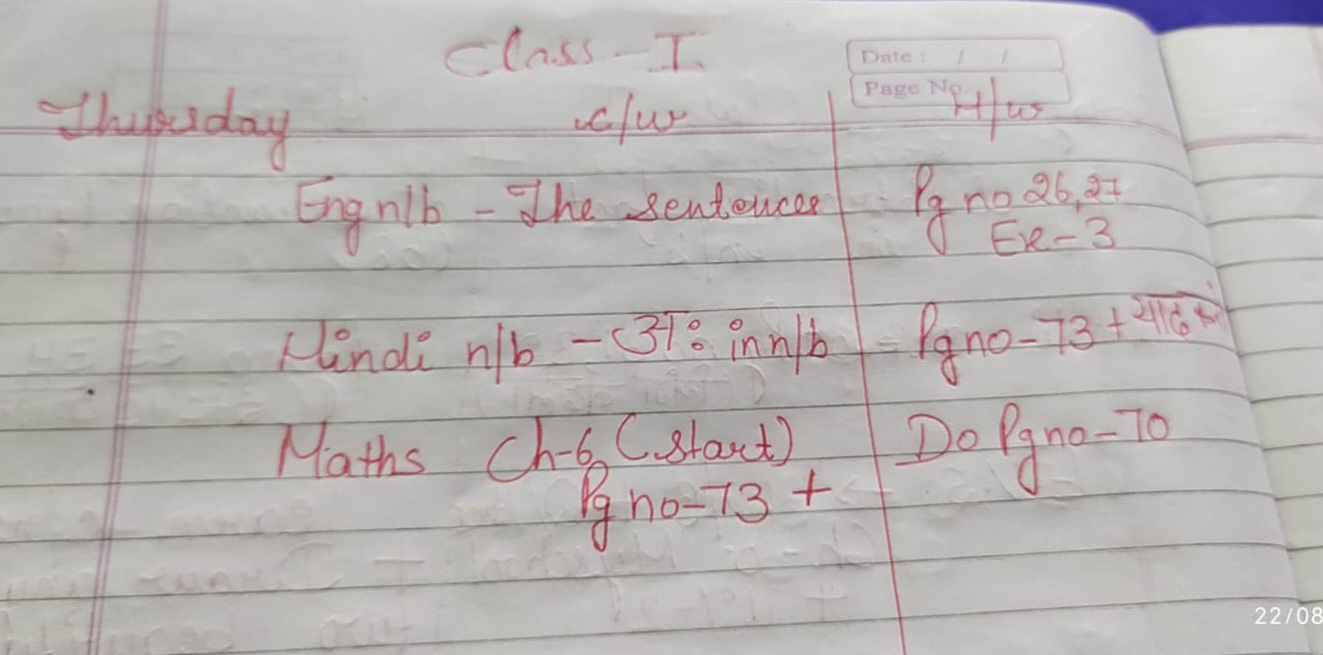 Class - I
Date : / /
Page No.
Thursday c/w H/w
Eng n/b - The sentences - Pg no 26,27
Ex - 3
Hindi n/b - अः in n/b - Pg no - 73 +
Maths Ch-6 (start) Do Pg no - 70
Pg no - 73 +
22/08